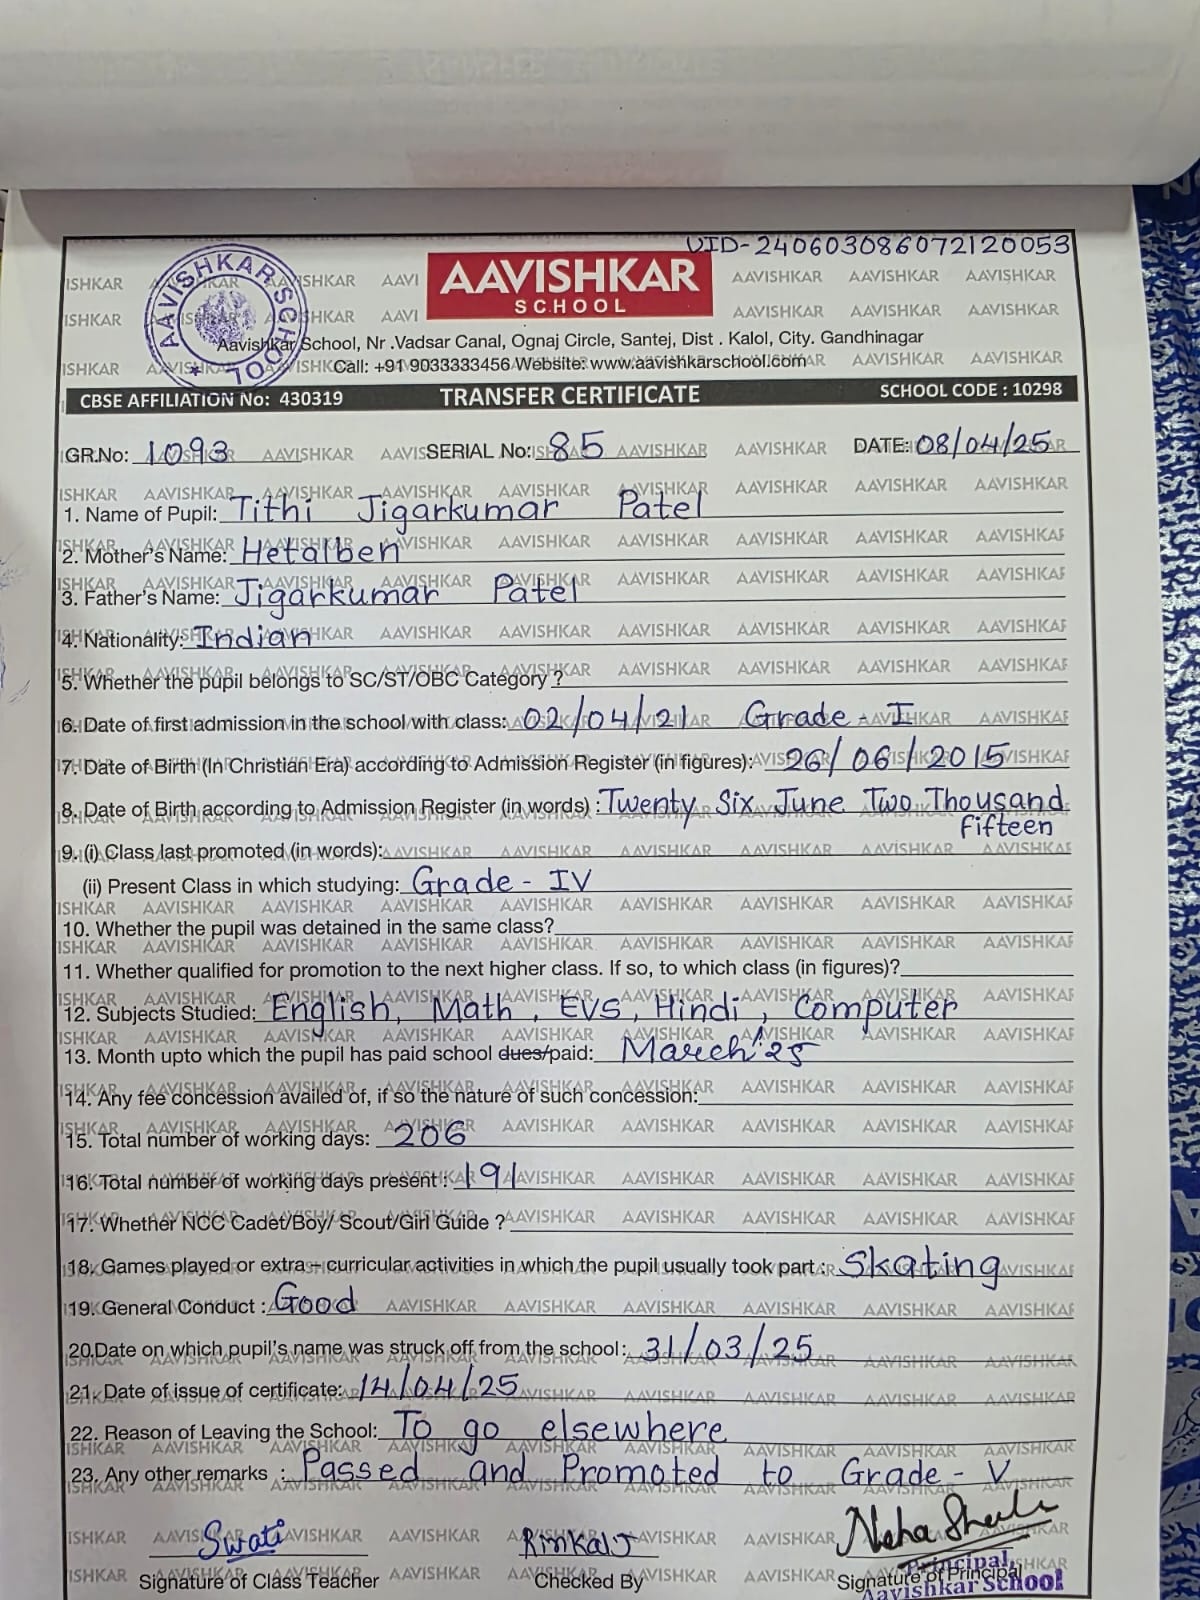 UID-240603086072120053
AAVISHKAR
SCHOOL
AAVISHKAR SCHOOL
Aavishkar School, Nr .Vadsar Canal, Ognaj Circle, Santej, Dist . Kalol, City. Gandhinagar
Call: +91 9033333456 Website: www.aavishkarschool.com
CBSE AFFILIATION No: 430319 TRANSFER CERTIFICATE SCHOOL CODE : 10298
GR.No: 1093 SERIAL No: 85 DATE: 08/04/25
1. Name of Pupil: Tithi Jigarkumar Patel
2. Mother's Name: Hetalben
3. Father's Name: Jigarkumar Patel
4. Nationality: Indian
5. Whether the pupil belongs to SC/ST/OBC Category ?
6. Date of first admission in the school with class: 02/04/21 Grade - I
7. Date of Birth (In Christian Era) according to Admission Register (in figures): 26/06/2015
8. Date of Birth according to Admission Register (in words) : Twenty Six June Two Thousand
Fifteen
9. (i) Class last promoted (in words):
(ii) Present Class in which studying: Grade - IV
10. Whether the pupil was detained in the same class?
11. Whether qualified for promotion to the next higher class. If so, to which class (in figures)?
12. Subjects Studied: English, Math , EVS , Hindi , Computer
13. Month upto which the pupil has paid school dues/paid: March'25
14. Any fee concession availed of, if so the nature of such concession:
15. Total number of working days: 206
16. Total number of working days present : 191
17. Whether NCC Cadet/Boy/ Scout/Girl Guide ?
18. Games played or extra – curricular activities in which the pupil usually took part : Skating
19. General Conduct : Good
20.Date on which pupil's name was struck off from the school: 31/03/25
21. Date of issue of certificate: 14/04/25
22. Reason of Leaving the School: To go elsewhere
23. Any other remarks : Passed and Promoted to Grade - V
Swati Rinkal J Neha Shah
Signature of Class Teacher Checked By Signature of Principal
Principal,
Aavishkar School